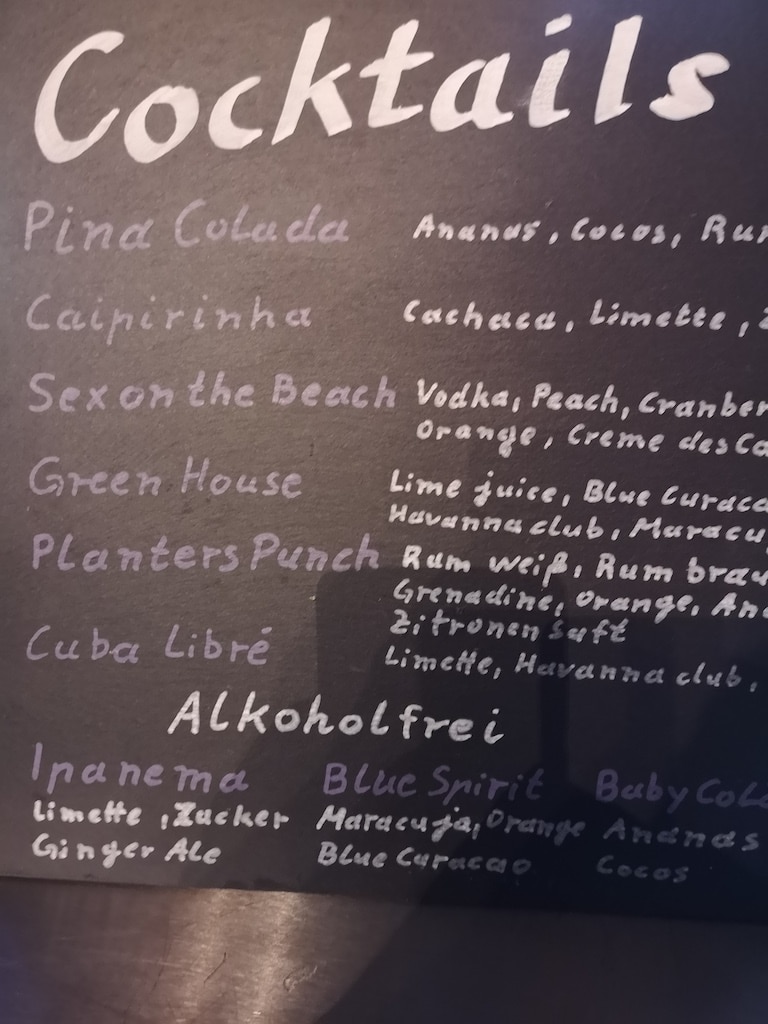 Cocktails
Pina Colada Ananas, Cocos, Rum
Caipirinha Cachaca, Limette,
Sex on the Beach Vodka, Peach, Cranber
Orange, Creme des Ca
Green House Lime juice, Blue Curaca
Havanna club, Maracu
Planters Punch Rum weiß, Rum brau
Grenadine, Orange, Ana
Zitronensaft
Cuba Libré Limette, Havanna club,
Alkoholfrei
Ipanema Blue Spirit Baby Cola
Limette, Zucker Maracuja, Orange Ananas
Ginger Ale Blue Curacao Cocos